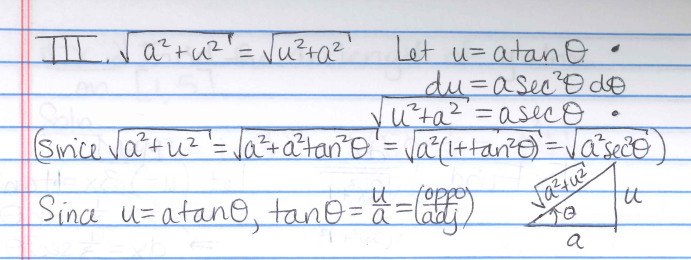 III. √(a²+u²) = √(u²+a²) Let u = a tanθ •
du = a sec²θ dθ
√(u²+a²) = a secθ •
(Since √(a²+u²) = √(a²+a²tan²θ) = √(a²(1+tan²θ)) = √(a²sec²θ))
Since u = a tanθ, tanθ = u/a = (oppo/adj) √(a²+u²) u
θ
a